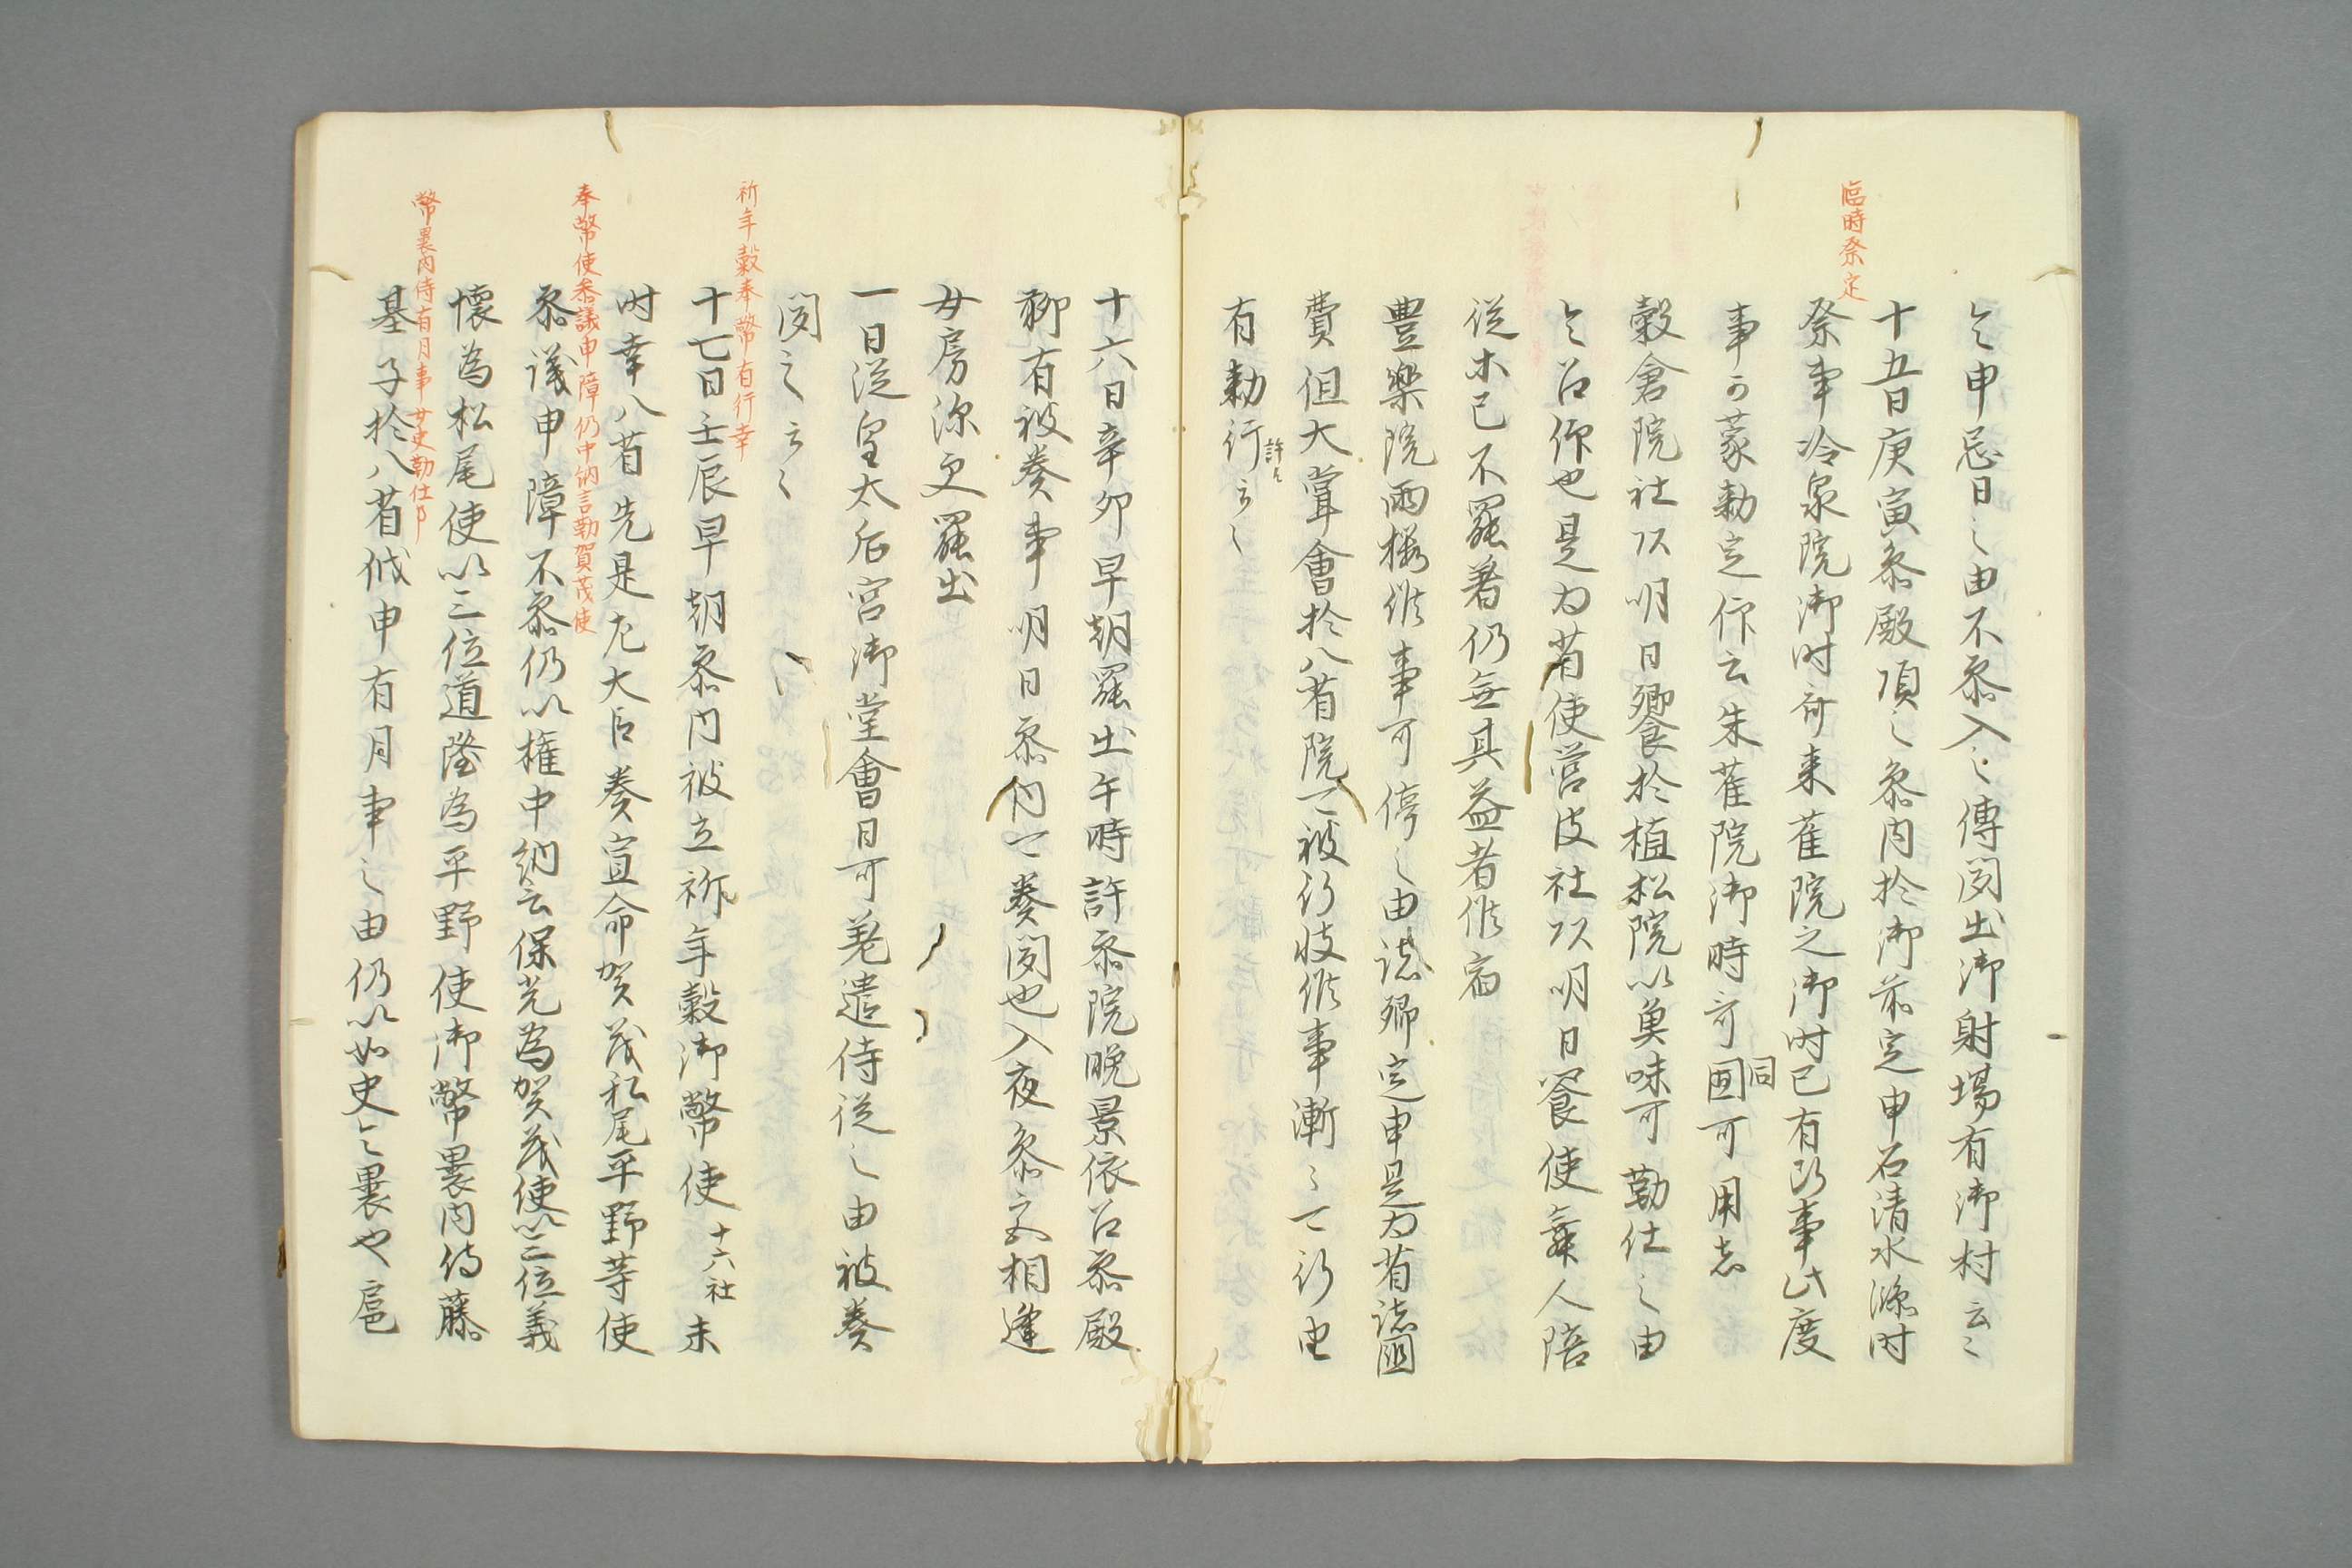 臨時祭定
令申忌日之由不参入之傳聞出御射場有御村云〻
十五日庚寅参殿頃之参内於御前定申石清水臨時
祭事冷泉院御時可来雀院之御时已有所事此度
事可蒙勅定作云朱雀院御時可同可用志
穀倉院社以明日饗於植松院以魚味可勤仕之由
令召作也是为省使営彼社以明日饗使舞人陪
従木已不罷著仍無具益者俟宿
豊樂院雨楼俟事可停之由諸卿定申是为省諸國
費但大甞會於八省院可被行彼俟事漸〻可行由
有勅行許欤云〻
十六日辛卯早朝罷出午時許参院晚景依召参殿
聊有被奏事明日参内可奏聞也入夜参家相逢
女房深更罷出
一日従皇太后宮御堂會日可差遣侍従之由被奏
聞之云〻
祈年穀奉幣有行幸
十七日壬辰早朝参内被立祈年穀御幣使十六社未
时幸八省先是左大臣奏宣命賀茂松尾平野等使
奉幣使参議申障仍中納言勤賀茂使
参議申障不参仍以権中納言保光為賀茂使以三位義
懐為松尾使以三位道隆為平野使御幣裹内侍藤
幣裹内侍有月事女史勤仕事
基子於八省俄申有月事之由仍以女史令裹也扈